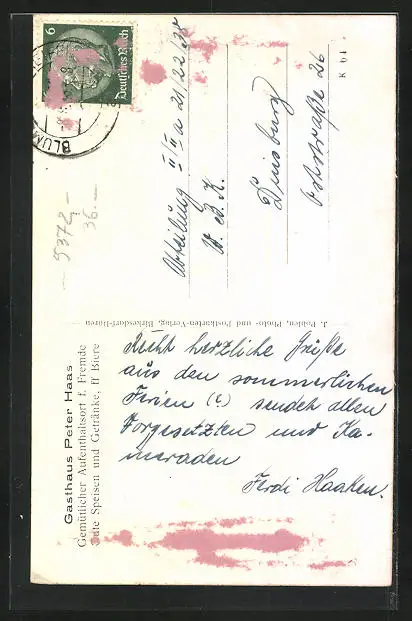 Gasthaus Peter Haas
Gemütlicher Aufenthaltsort f. Fremde
Gute Speisen und Getränke, ff Biere
J. Pohlen, Photo- und Postkarten-Verlag, Birkesdorf-Düren
Recht herzliche Grüße
aus den sommerlichen
Ferien (?) sendet allen
Vorgesetzten und Ka-
meraden
Ferdi Haaken.
6
Deutsches Reich
BLUM
Abteilung II/II a 21/22/38
W. B. K.
Duisburg
Oststraße 26
K 61.
5372,-
36.-